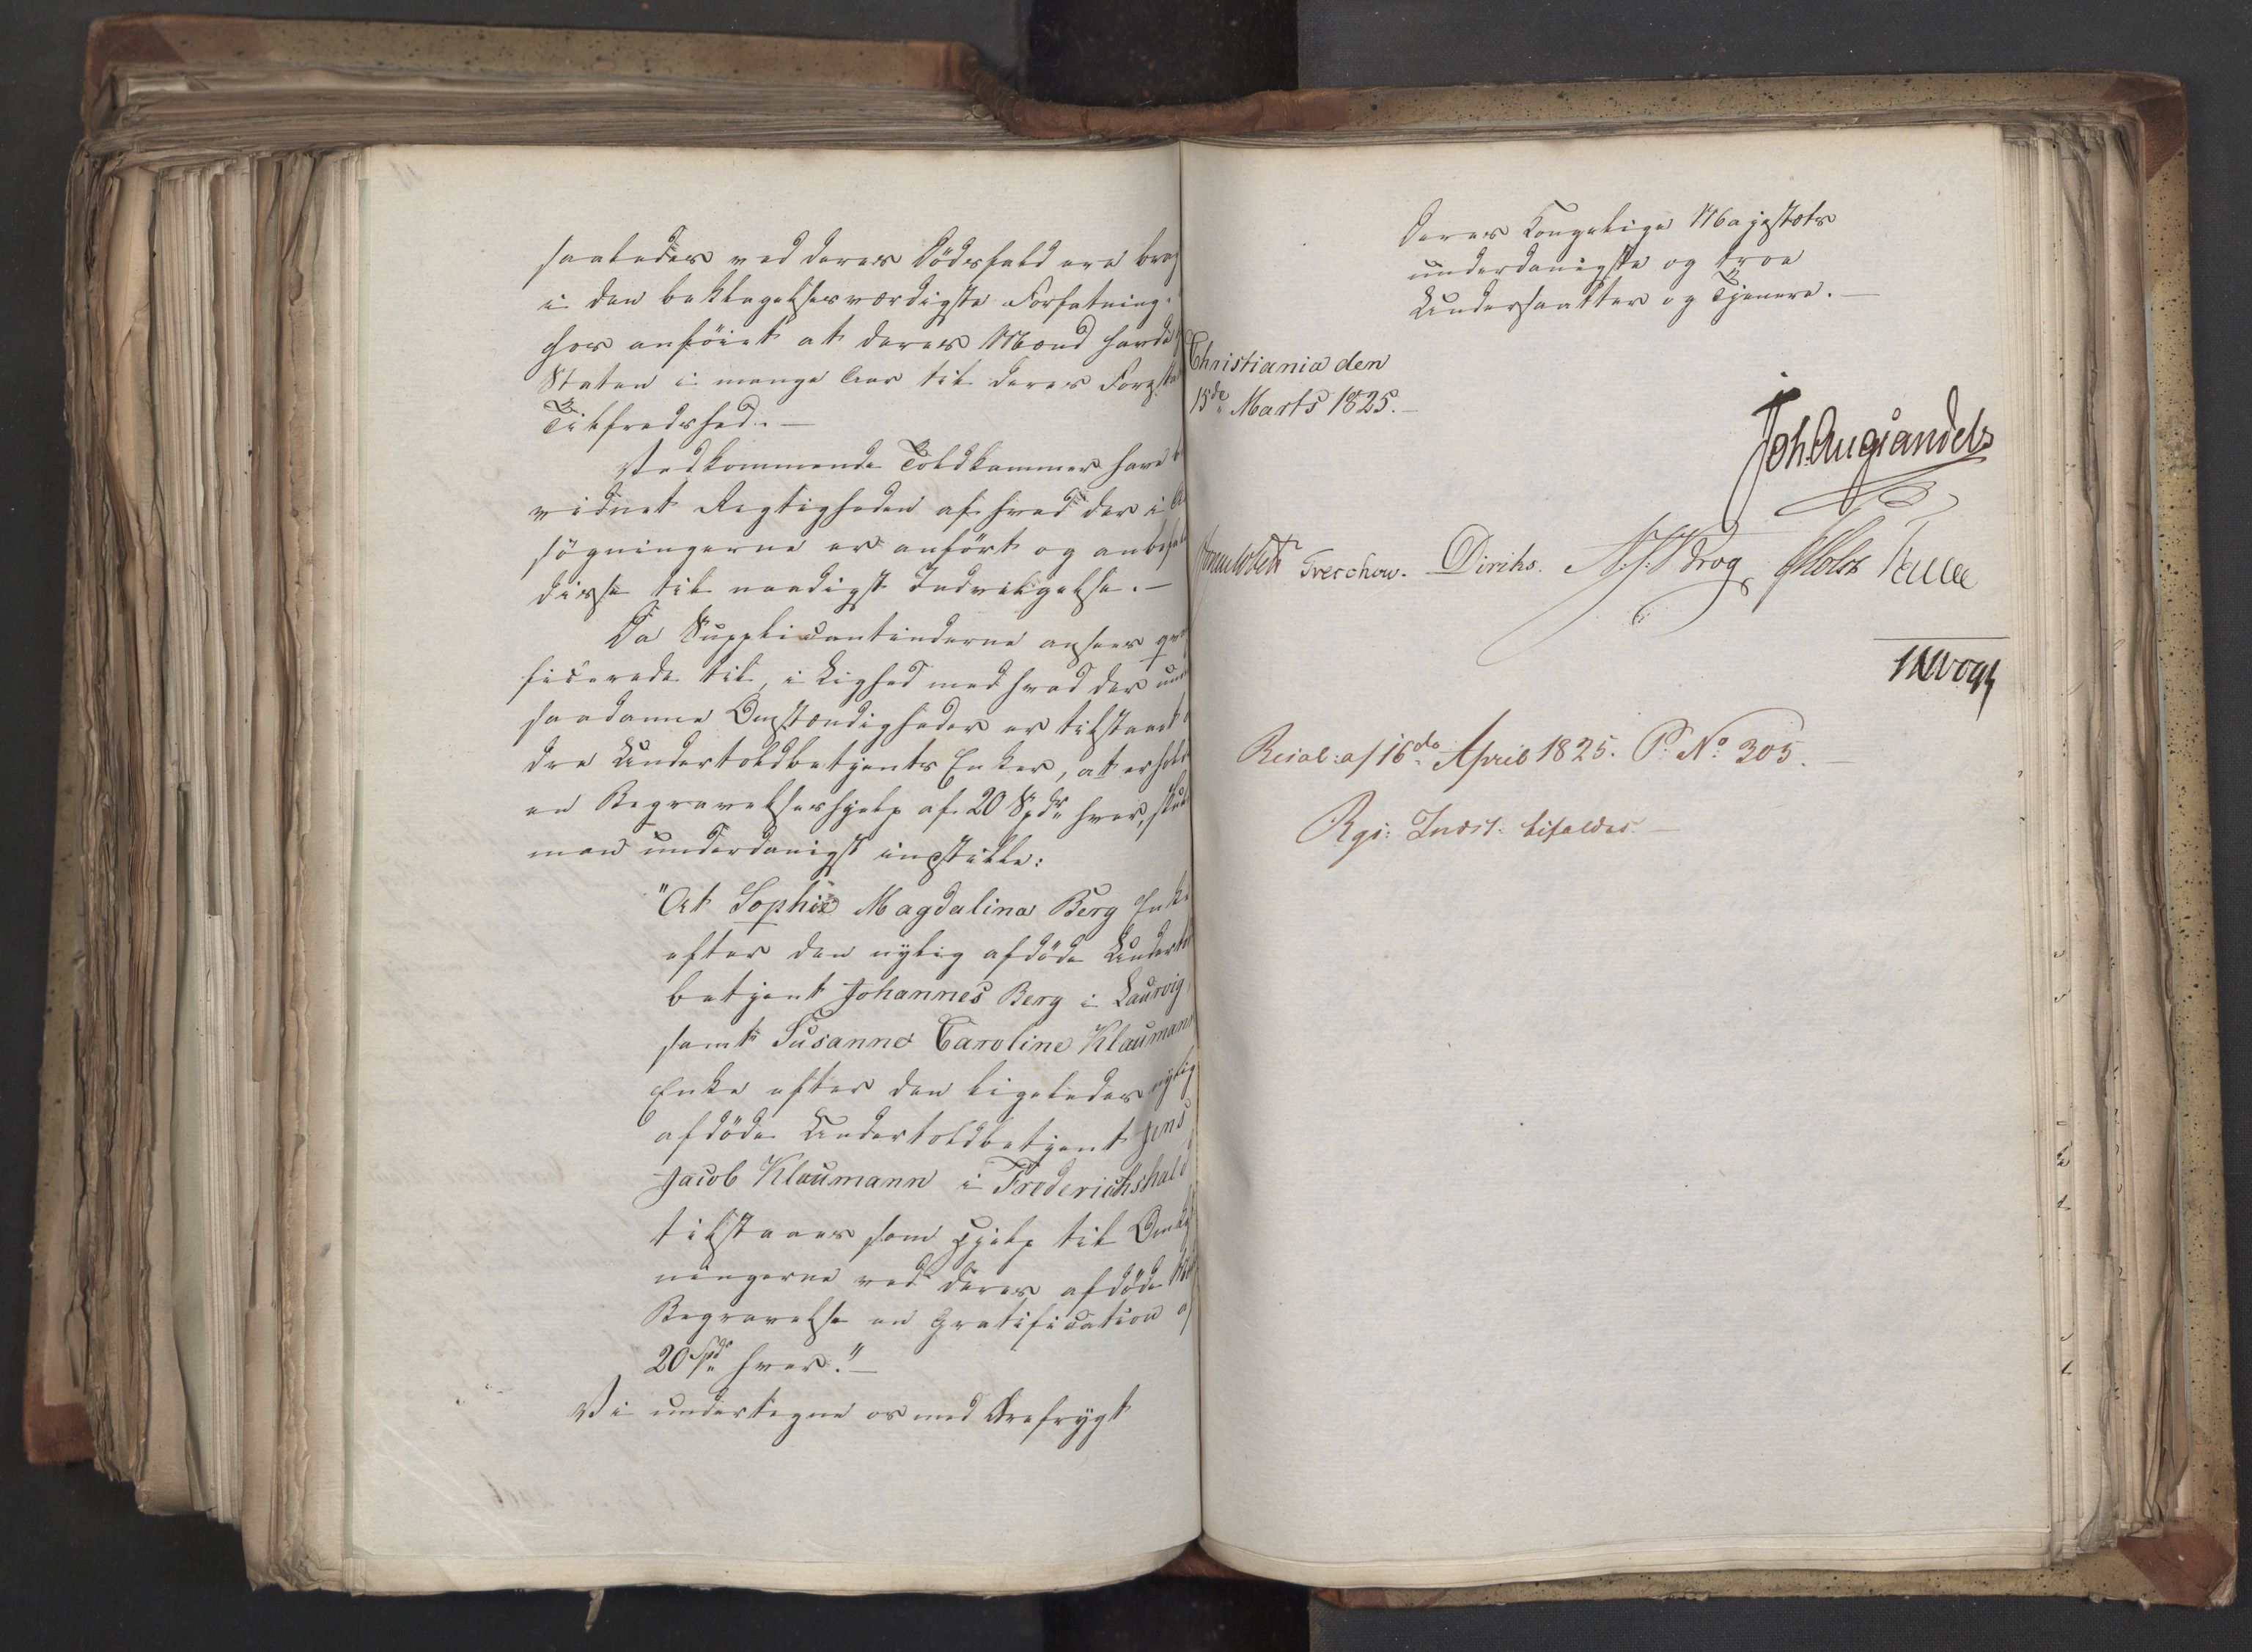 saaledes ved deres Dödsfald ere brag
i den beklagelsesværdigste Forfatning.
hos anföiet at deres Mænd havde
Staten i mange Aar til deres Foresta
Tilfredshed. —
Vedkommende Toldkammer have be
vidnet Rigtigheden af hvad der i An
sögningerne er anfört og anbefale
disse til naadigst Indvilgelse. —
Da Supplicantinderne ansees qva
ficerede til, i Lighed med hvad der und
saadanne Omstændigheder er tilstaaet
dre Undertoldbetjents Enker, at erhold
en Begravelseshjelp af 20 Spdr hver, skul
man underdanigst instille:
"At Sophie Magdalina Berg Enke
efter den nylig afdöde Undertold
betjent Johannes Berg i Laurvig,
samt Susanne Caroline Klaumann
Enke efter den ligeledes nylig
afdöde Undertoldbetjent Jens
Jacob Klaumann i Frederichshald
tilstaaes som Hjelp til Omkost
ningerne ved deres afdöde Mæ
Begravelse en Gratification af
20 Spdr hver." —
Vi undertegne os med Ærefrygt
Deres Kongelige Majestæts
underdanigste og troe
Undersaatter og Tjenere. —
Christiania den
15de Marts 1825. —
Joh. Aug Sandels
Sommerhielm Treschow. Diriks. N. J. Krog P Motzfeldt Fasting
J H Vogt
Resol: af 16de April 1825. P. No 305. —
Rgs: Indst: bifaldes. —